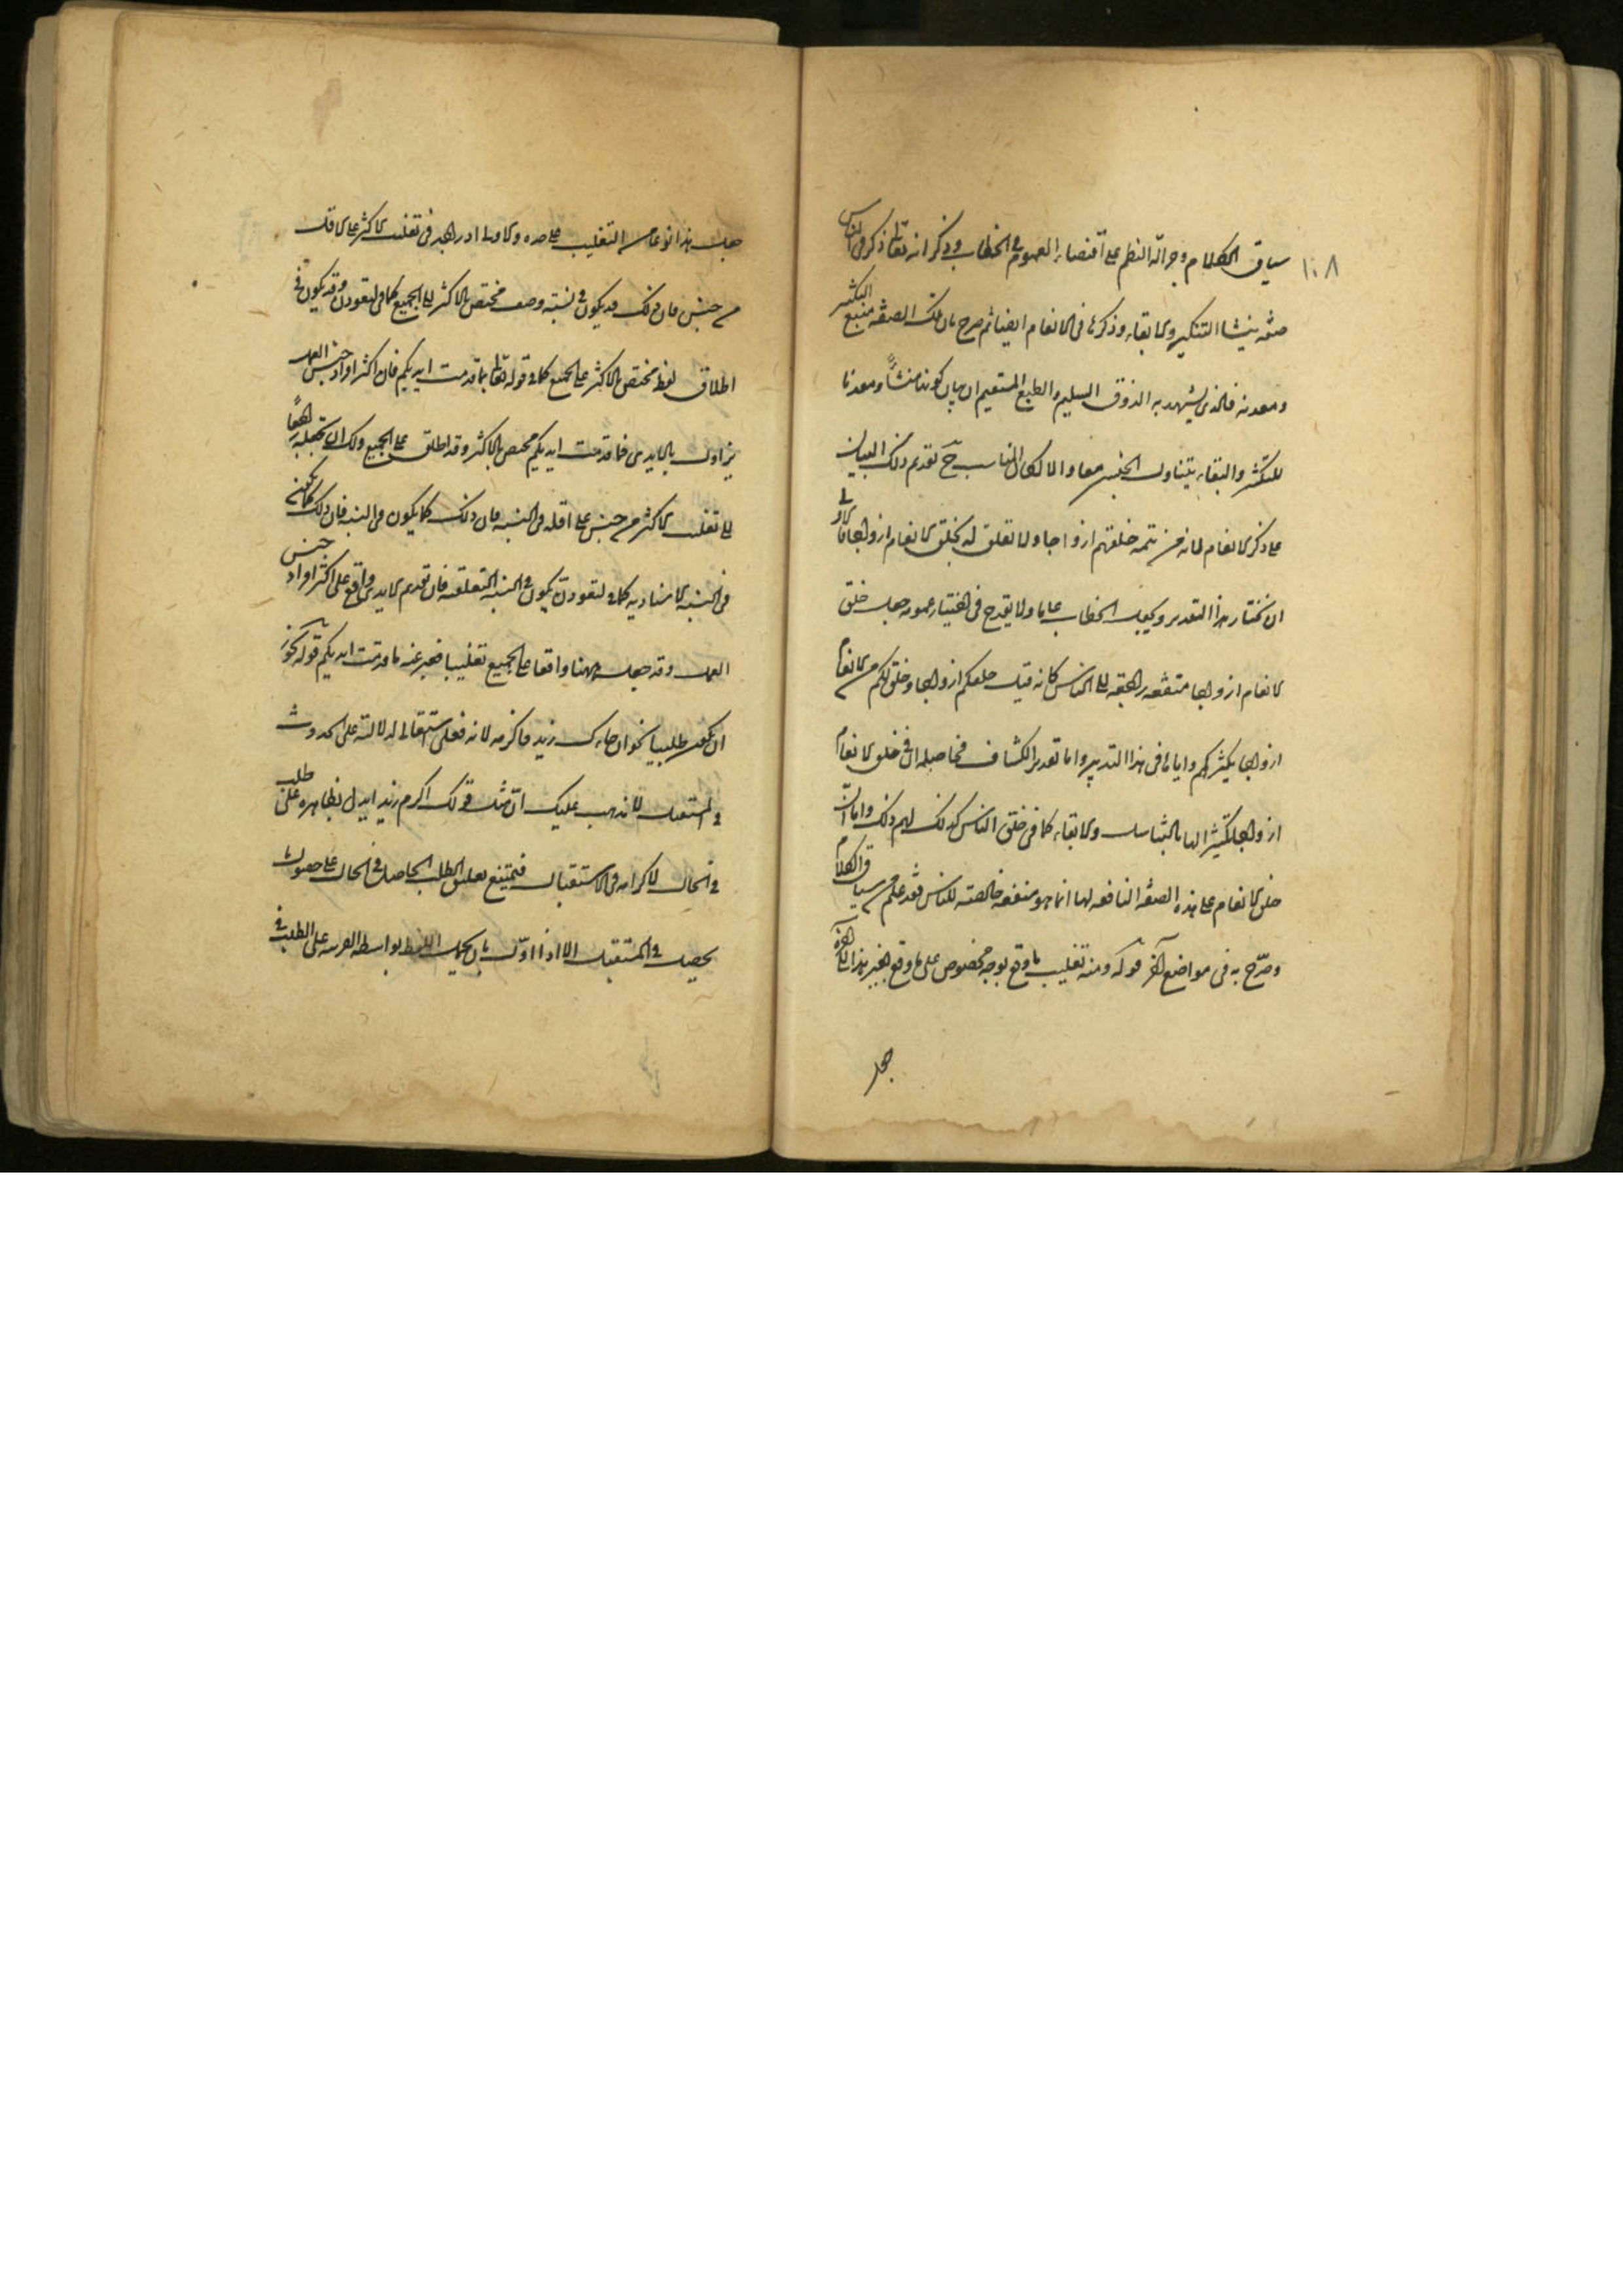 ١٠٨
سياق الكلام وجزالة النظم على اقتضاء العموم في الخطاب وذكر انه تعالى ذكر في الناس
صفة ينشا التكثير والبقاء وذكرها في الانعام ايضا ثم صرح بان تلك الصفة منبع التكثير
ومعدنه فالذي يشهد به الذوق السليم والطبع المستقيم ان بيان كونها منشأً ومعدنا
للتكثر والبقاء يتناول الجنسين معا والا لكان المناسب ح تقديم ذلك البيان
على ذكر الانعام لانه من تتمة خلقهم ازواجا ولا تعلق له بخلق الانعام ازواجا فالاولى
ان نختار هذا التقدير ويجعل الخطاب عاما ولا يقدح في اختيار عمومه جعل خلق
الانعام ازواجا منفعة راجعة الى الناس كانه قيل خلقكم ازواجا وخلق لكم من الانعام
ازواجا يكثركم واياها في هذا التدبير واما تقدير الكشاف فحاصله ان في خلق الانعام
ازواجا تكثيرا لها بالتناسل والابقاء كما في خلق الناس كذلك لهم ذلك واما ان
خلق الانعام على هذه الصفة النافعة لها انما هو منفعة خالصة للناس فقد علم من سياق الكلام
وصرّح به في مواضع اخر قوله ومنه تغليب ما وقع بوجه مخصوص على ما وقع بغير هذا الوجه
جعل
جعل هذا نوعا من التغليب على حده والاولى ادراجه في تغليب الاكثر على الاقل
من جنس فان ذلك قد يكون في نسبة وصف مختص بالاكثر الى الجميع كما في لتعودن وقد يكون في
اطلاق لفظ مختص بالاكثر على الجميع كما في قوله تعالى بما قدمت ايديكم فان اكثر افراد جنس العمل
يزاول بالايدي فما قدمت ايديكم مختص بالاكثر وقد اطلق على الجميع ولك ان تجعله راجعًا
الى تغليب الاكثر من جنس على اقله في النسبة فان ذلك كما يكون في النسبة
في النسبة الاسنادية كما في لتعودن يكون في النسبة التعلقية فان تقديم الايدي واقع على اكثر افراد جنس
العمل وقد جعل ههنا واقعا على الجميع تغليبا فعبر عنه بما قدمت ايديكم قوله يجوز
ان يكون طلبيا نحو ان جاءك زيد فاكرمه لانه فعلى استقبالى لدلالته على الحدوث
في المستقبل لا يذهب عليك انّ مثل قولك اكرم زيدا يدل بظاهره على طلب
في الحال لاكرامه في الاستقبال فيمتنع تعليق الطلب الحاصل في الحال على حصول ما
يحصل في المستقبل الا اذا اوّل بان يحمل اللفظ بواسطة القرينة على الطلب في